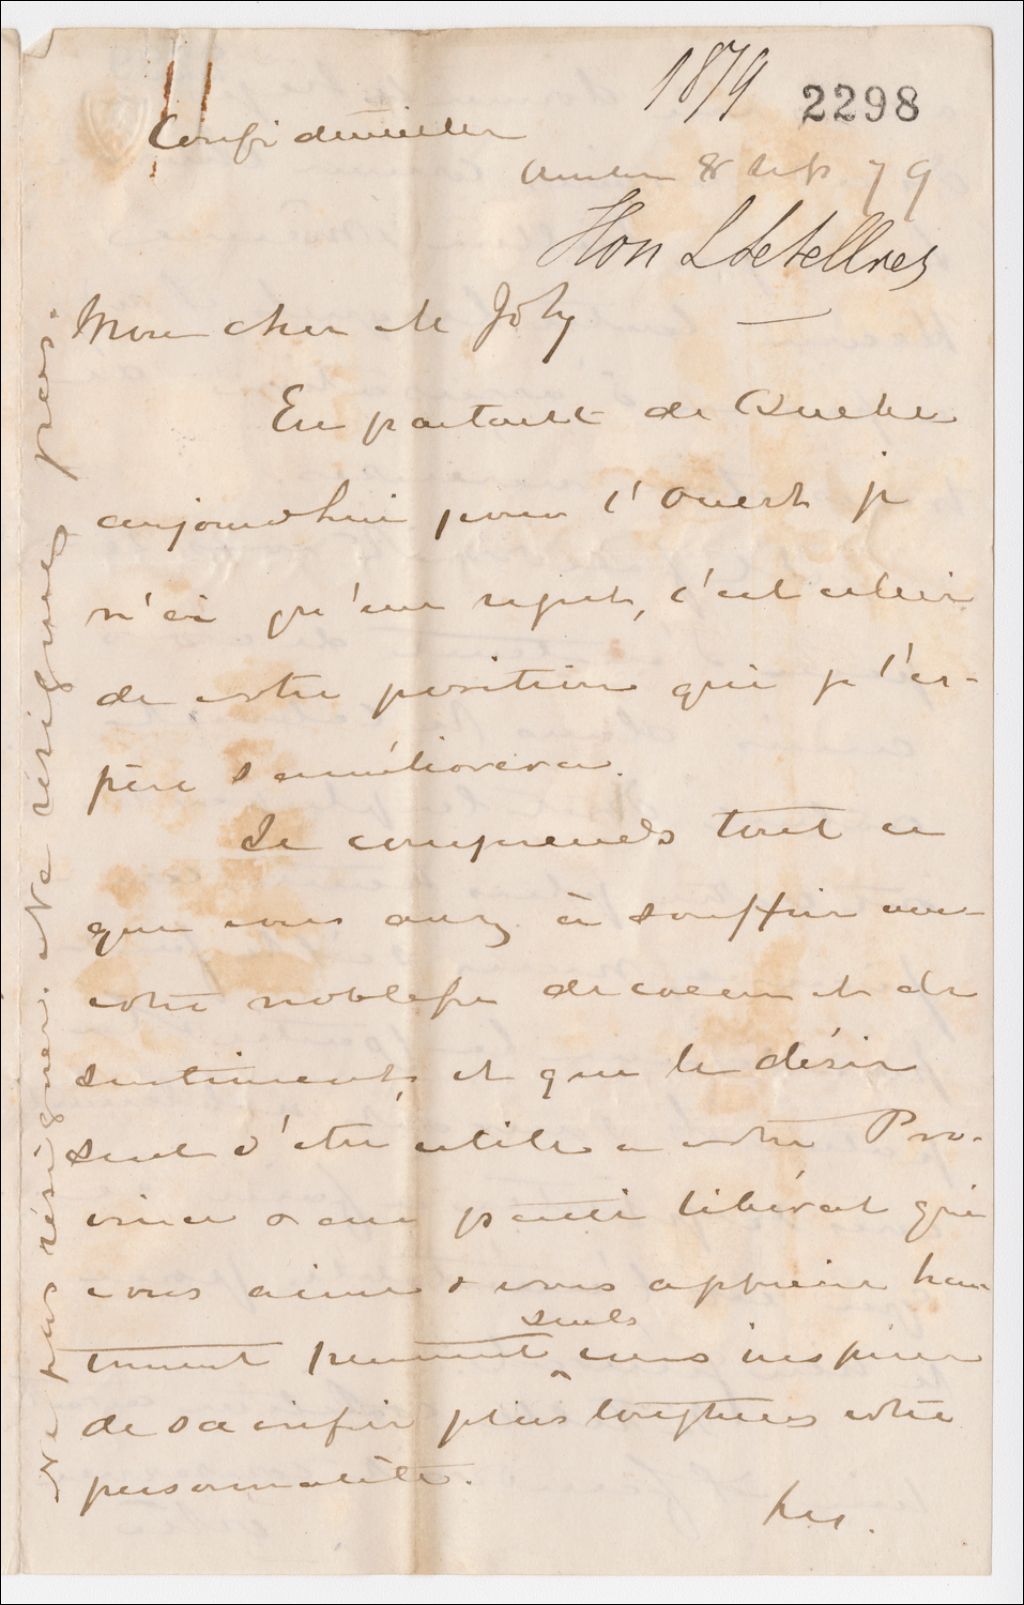 1879
2298
Confidentielle
8 Sept 79
Hon L Letellier
Mon cher M Joly
En partant de Quebec
aujourdhui pour l'Ouest je
n'ai qu'un regret, c'est celui
de votre position que je l'es-
père s'améliorera.
Je comprends tout ce
que vous avez à souffrir avec
votre noblesse de coeur et de
sentiments, et que le désir
seul d'etre utile a votre Pro-
vince & au parti libéral qui
vous aime & vous apprécie hau-
tement peuvent seuls vous inspirer
de sacrifier plus longtemps votre
personnalité.
Ne pas résigner. Ne résignez pas.